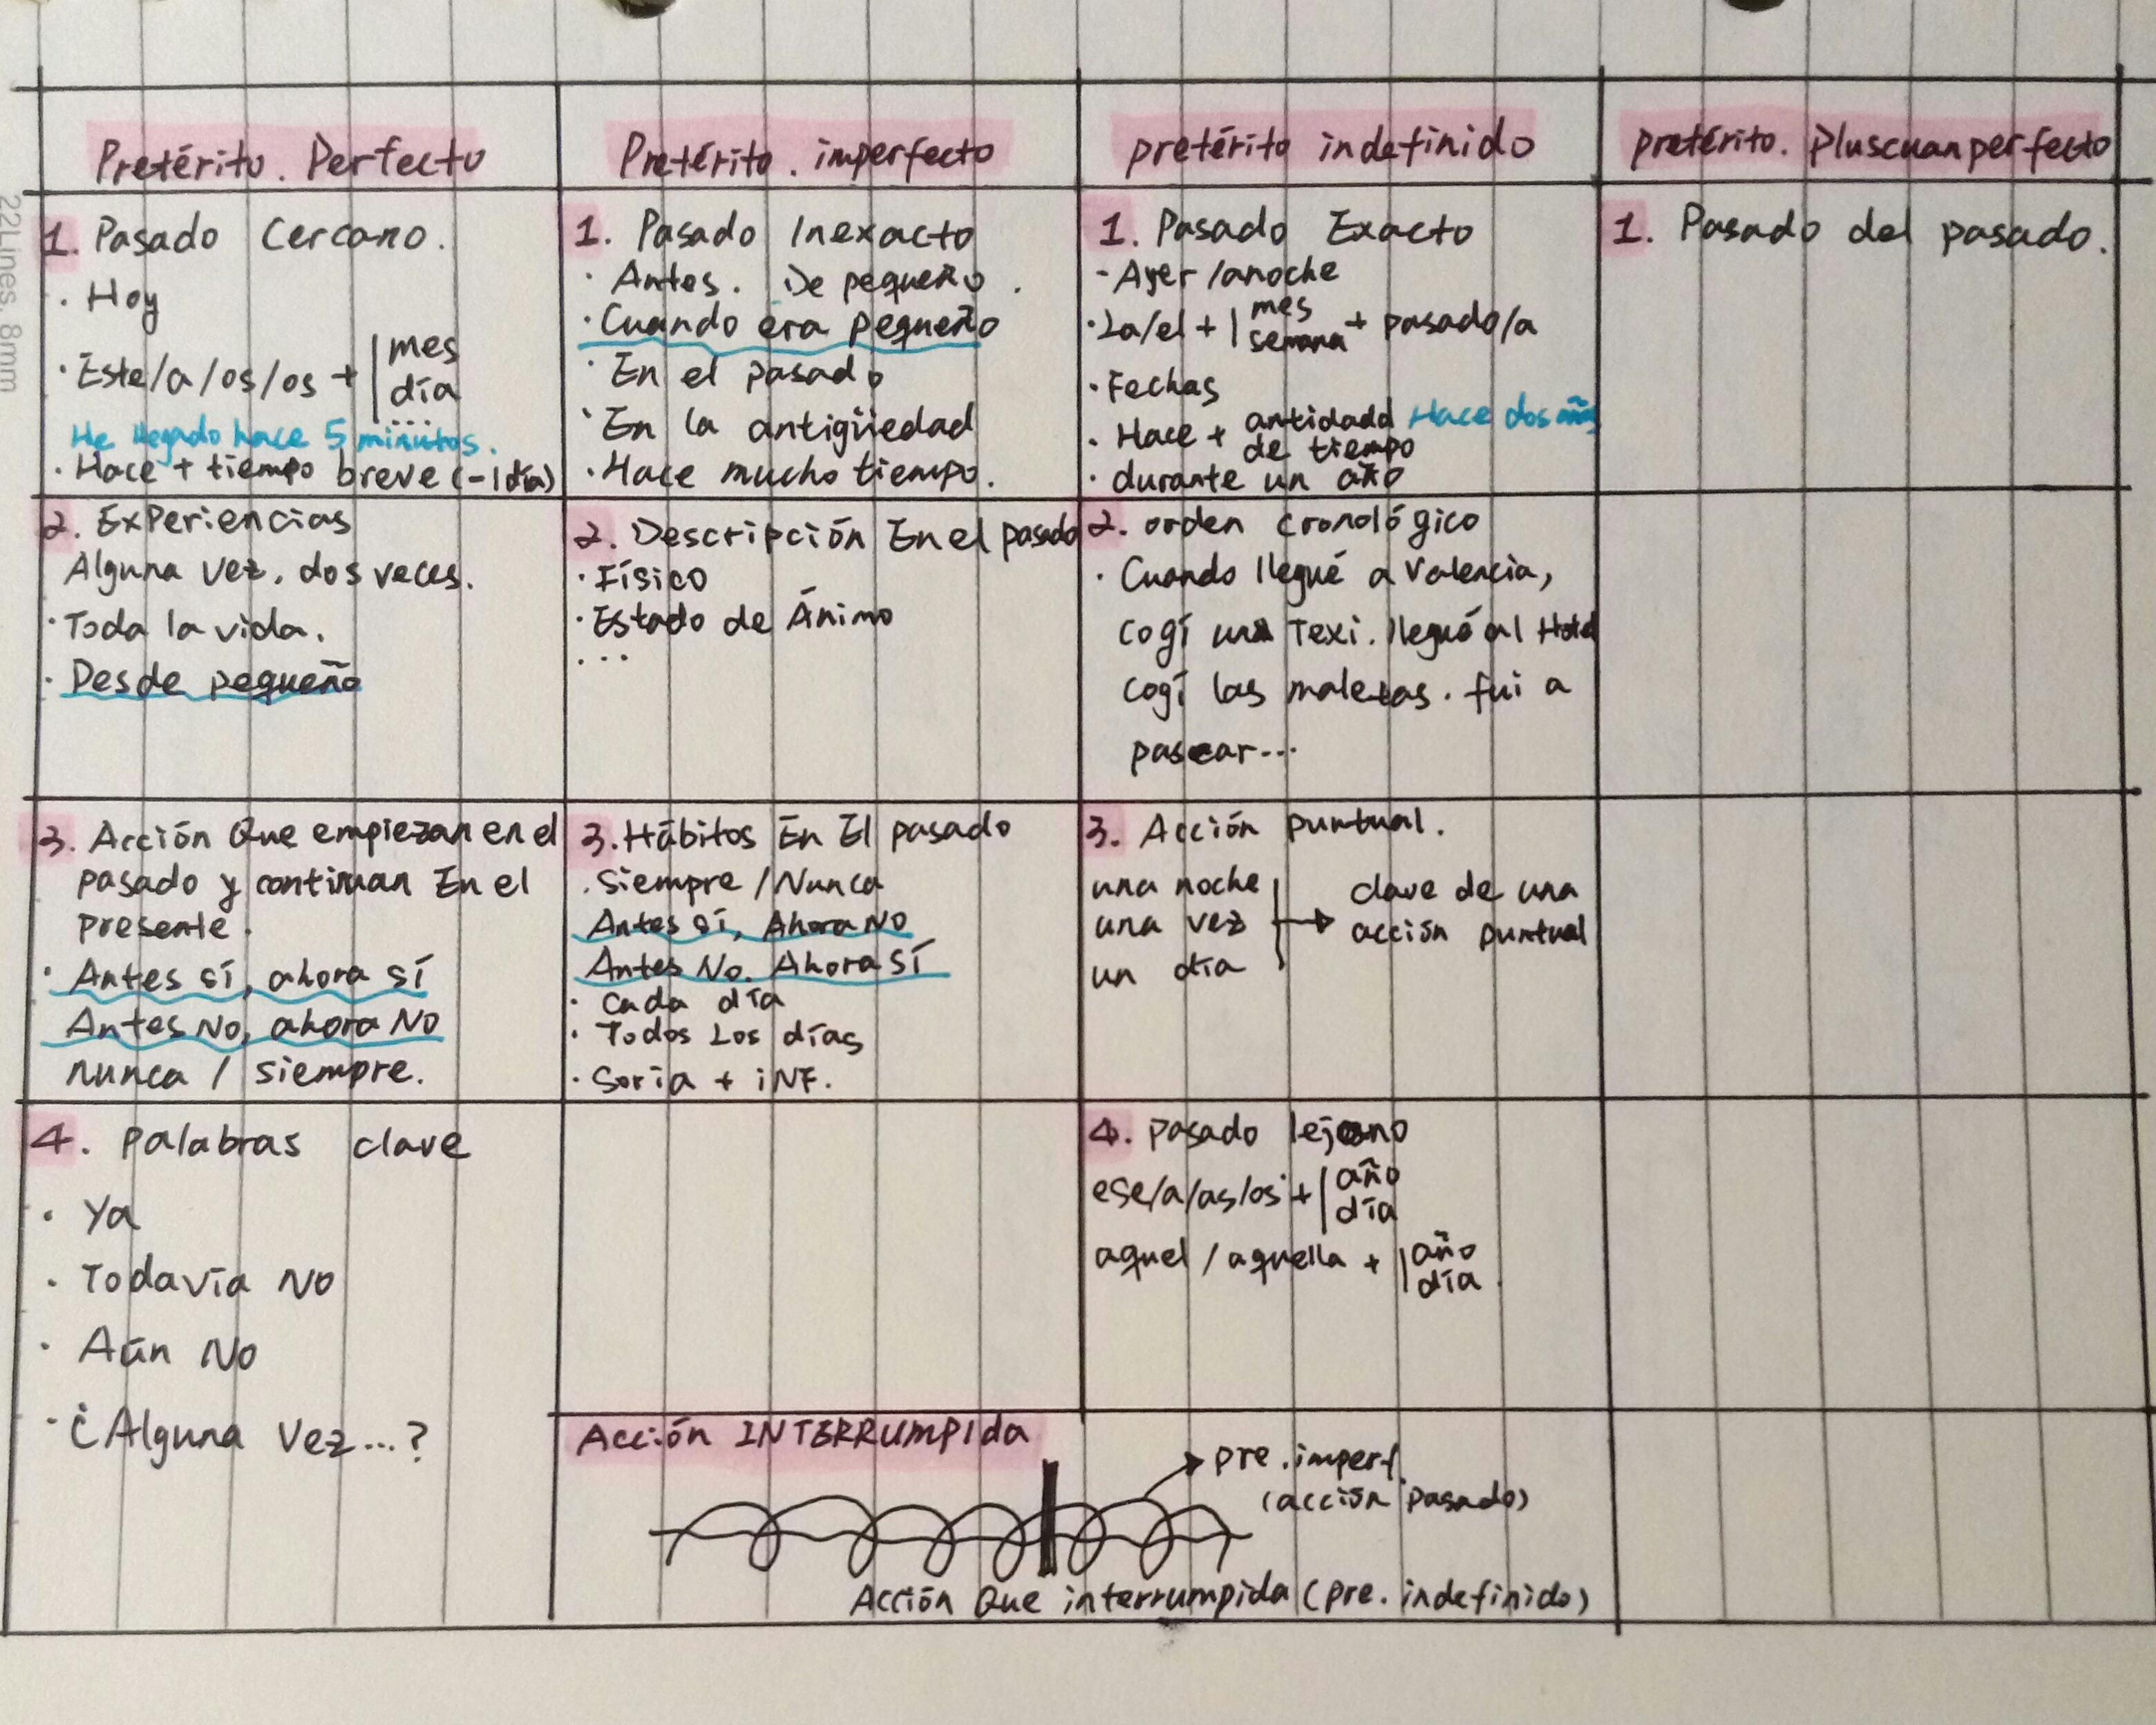 22Lines. 8mm
Pretérito. Perfecto
1. Pasado Cercano.
· Hoy
· Este/a/os/os + | mes
día
...
He llegado hace 5 minutos.
· Hace + tiempo breve (-1día)
2. Experiencias
Alguna vez. dos veces.
· Toda la vida.
· Desde pequeño
3. Acción Que empiezan en el
pasado y continuan En el
presente.
· Antes sí, ahora sí
Antes No, ahora No
nunca / siempre.
4. Palabras clave
· Ya
· Todavía No
· Aún No
· ¿Alguna Vez...?
Pretérito. imperfecto
1. Pasado Inexacto
· Antes. De pequeño.
· Cuando era pequeño
· En el pasado
· En la antigüedad
· Hace mucho tiempo.
2. Descripción En el pasado
· Físico
· Estado de Ánimo
...
3. Hábitos En El pasado
· siempre / Nunca
Antes sí, Ahora No
Antes No. Ahora Sí
· Cada día
· Todos Los días
· Soria + iNF.
pretérito indefinido
1. Pasado Exacto
- Ayer /anoche
· La/el + | mes
semana + pasado/a
· Fechas
· Hace + antidadd Hace dos años
de tiempo
· durante un año
2. orden cronológico
· Cuando llegué a Valencia,
cogí un Texi. llegué al Hotel
cogí las maletas. fui a
pasear...
3. Acción puntual.
una noche
una vez
un día
clave de una
acción puntual
4. pasado lejano
ese/a/as/os + | año
día
aquel / aquella + | año
día.
pretérito. Pluscuanperfecto
1. Pasado del pasado.
Acción INTERRUMPIda
pre. imperf.
(acción pasado)
Acción Que interrumpida (pre. indefinido)